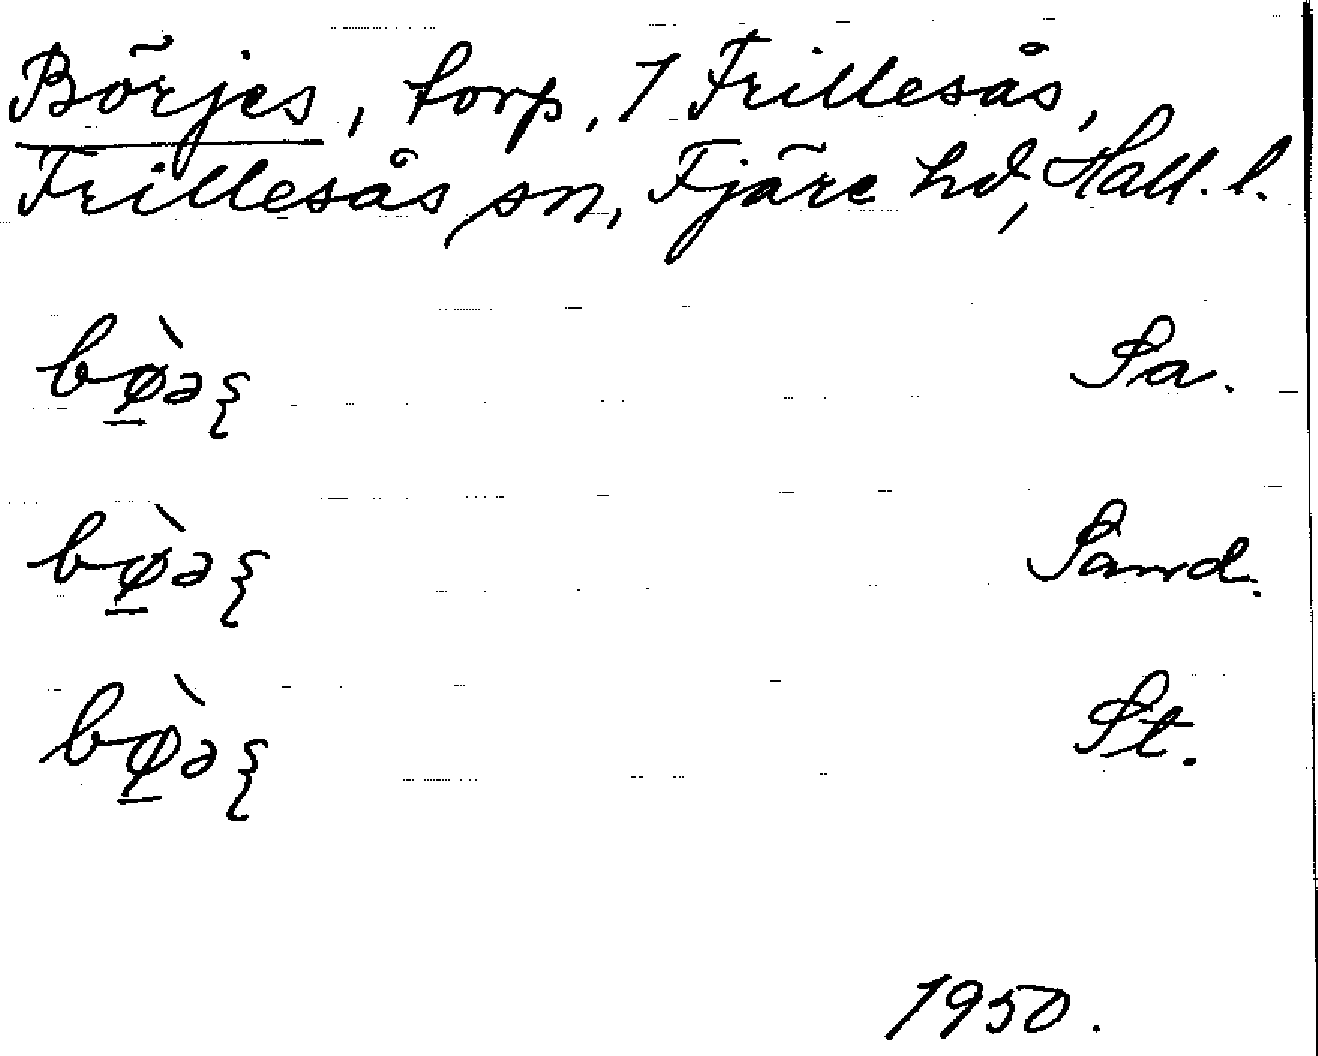 Börjes, torp, 1 Frillesås,
Frillesås sn, Fjäre hd, Hall. l.
bø̱̀əξ Sa.
bø̱̀əξ Sand.
bø̱̀əξ St.
1950.